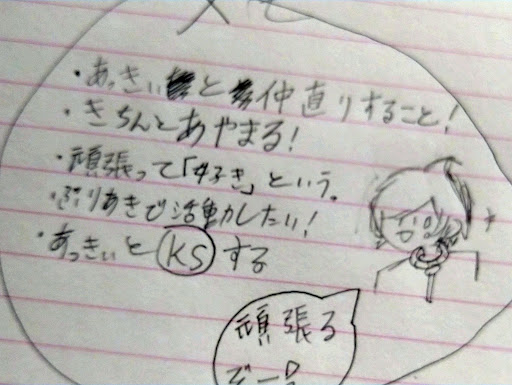 ・あっきぃと仲直りすること!
・きちんとあやまる!
・頑張って「好き」という。
・ぷりあきで活動したい!
・あっきぃとKSする
頑張る
ぞー!